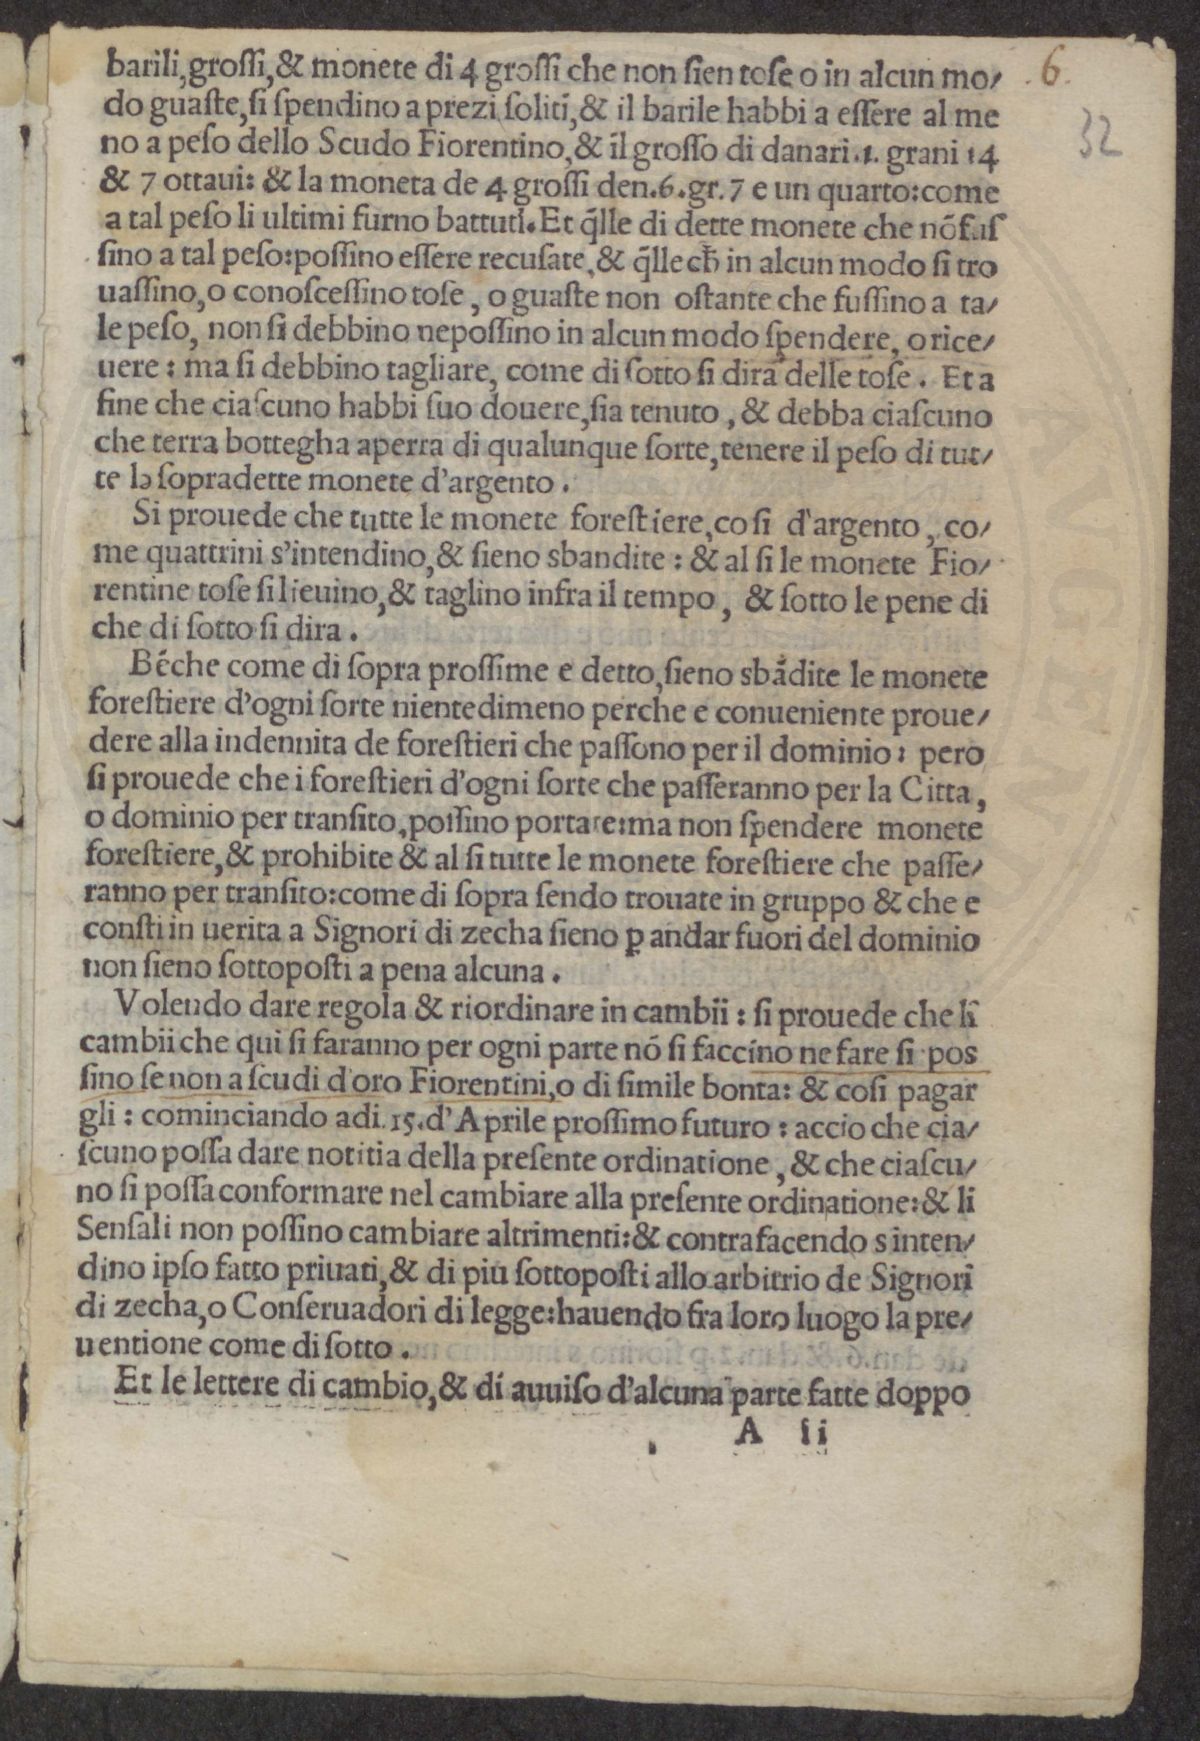 barili,grossi,& monete di 4 grossi che non sien tose o in alcun mo/
do guaste,si spendino a prezi soliti,& il barile habbi a essere al me
no a peso dello Scudo Fiorentino,& il grosso di danari.1. grani 14
& 7 ottaui: & la moneta de 4 grossi den.6.gr.7 e un quarto:come
a tal peso li ultimi furno battuti. Et q̃lle di dette monete che nõ fus
sino a tal peso:possino essere recusate,& q̃lle ch̃ in alcun modo si tro
uassino,o conoscessino tose, o guaste non ostante che fussino a ta/
le peso, non si debbino nepossino in alcun modo spendere, o rice/
uere : ma si debbino tagliare, come di sotto si dira delle tose. Et a
fine che ciascuno habbi suo douere,sia tenuto, & debba ciascuno
che terra botthegha aperra di qualunque sorte,tenere il peso di tut/
te le sopradette monete d'argento.
Si prouede che tutte le monete forestiere,cosi d'argento, co/
me quattrini s'intendino,& sieno sbandite : & al si le monete Fio/
rentine tose si lieuino,& taglino infra il tempo, & sotto le pene di
che di sotto si dira.
Bẽche come di sopra prossime e detto,sieno sbãdite le monete
forestiere d'ogni sorte nientedimeno perche e conueniente proue/
dere alla indennita de forestieri che passono per il dominio: pero
si prouede che i forestieri d'ogni sorte che passeranno per la Citta,
o dominio per transito,possino portare:ma non spendere monete
forestiere,& prohibite & al si tutte le monete forestiere che passe/
ranno per transito:come di sopra sendo trouate in gruppo & che e
consti in uerita a Signori di zecha sieno ꝑ andar fuori del dominio
non sieno sottoposti a pena alcuna.
Volendo dare regola & riordinare in cambii : si prouede che li
cambii che qui si faranno per ogni parte nõ si faccino ne fare si pos
sino se non a scudi d'oro Fiorentini,o di simile bonta: & cosi pagar
gli : cominciando adi.15.d'Aprile prossimo futuro : accio che cia/
scuno possa dare notitia della presente ordinatione, & che ciascu/
no si possa conformare nel cambiare alla presente ordinatione:& li
Sensali non possino cambiare altrimenti:& contrafacendo s inten/
dino ipso fatto priuati,& di piu sottoposti allo arbitrio de Signori
di zecha,o Conseruadori di legge:hauendo fra loro luogo la pre/
uentione come di sotto.
Et le lettere di cambio,& di auuiso d'alcuna parte fatte doppo
A ii
6.
32